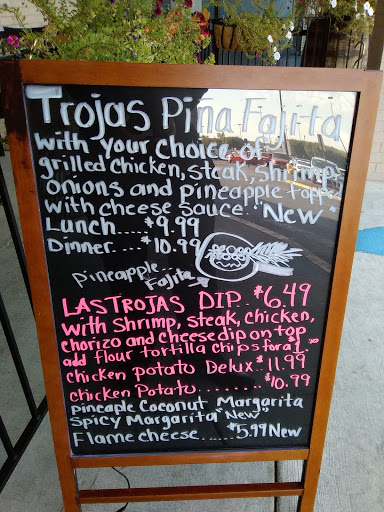 Trojas Pina Fajita
with your choice of
grilled chicken, steak, shrimp,
onions and pineapple topped
with cheese sauce. "New"
Lunch....$9.99
Dinner....$10.99
pineapple...
Fajita
LASTROJAS DIP..$6.49
with Shrimp, steak, chicken,
chorizo and cheese dip on top
add flour tortilla chips for a 1.
chicken potato Delux..$11.99
chicken Potato.........$10.99
pineaple Coconut Margarita
spicy Margarita "New"
Flame cheese......$5.99 New